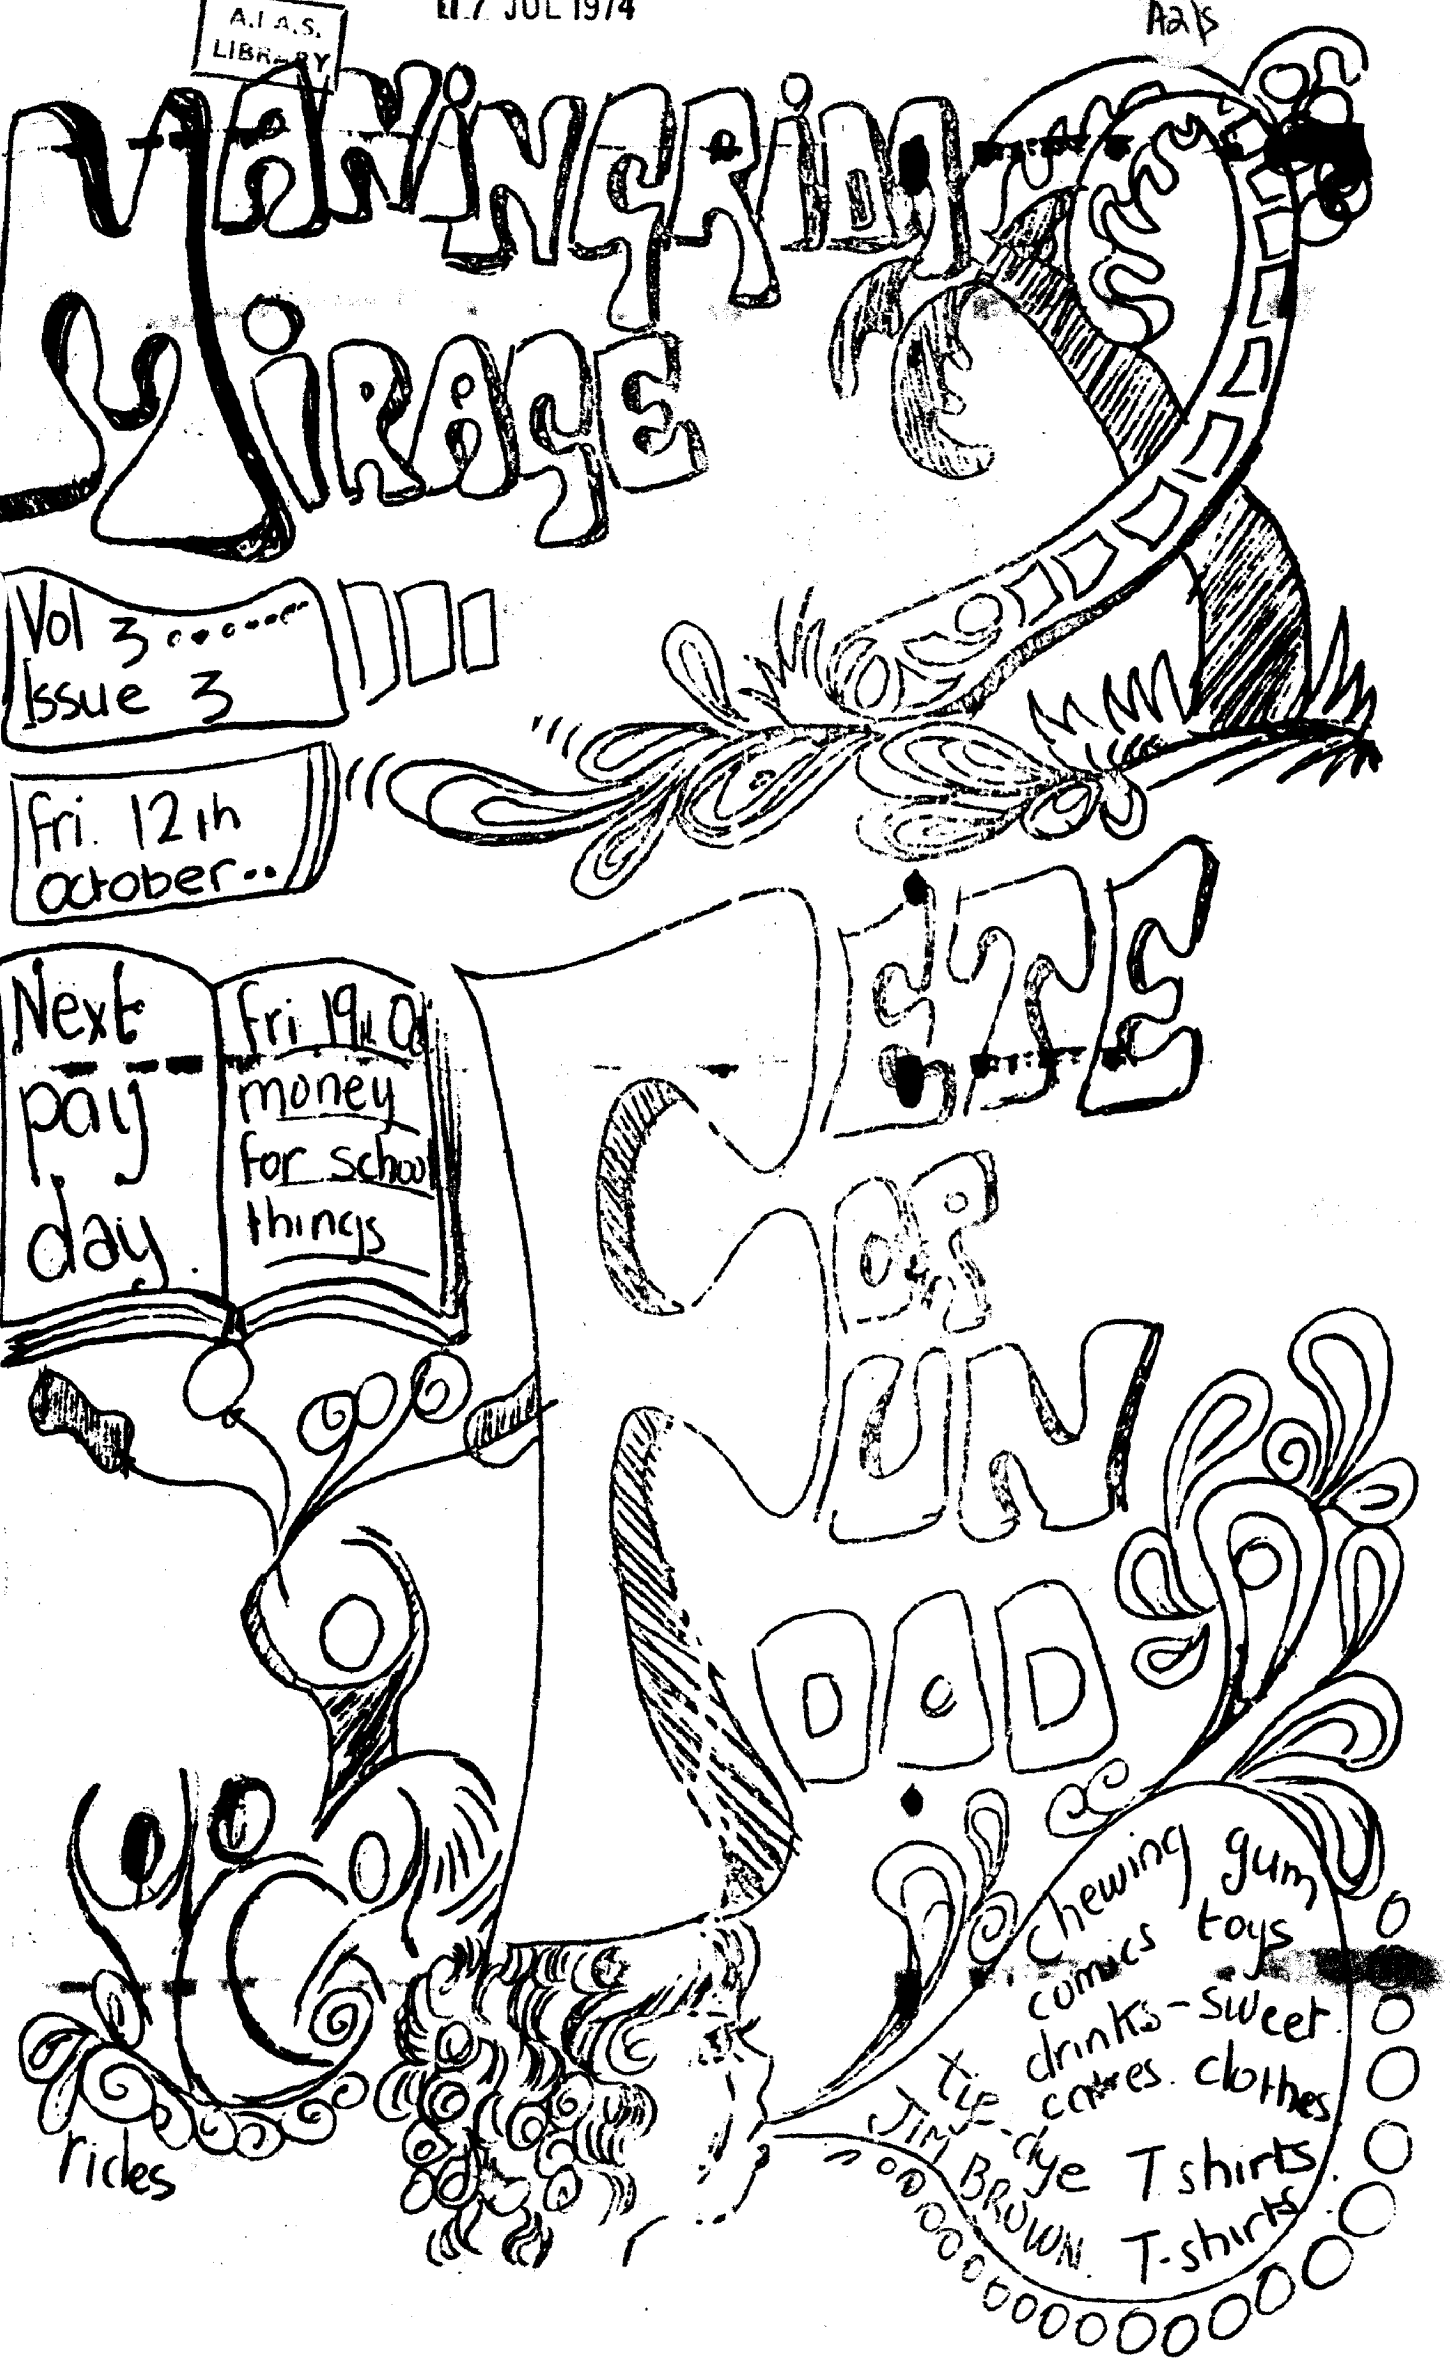 A.I.A.S.
LIBRARY
17 JUL 1974
A2|S
MANiNGRiDA
MiRAGE
Vol 3......
Issue 3
Fri. 12th
october..
Next
pay
day.
Fri 19th Oct
money
for school
things
FETE
FOR
FUN
FOOD
chewing gum
comics toys
drinks - sweet
clothes
tie-dye T shirts.
JIM BROWN. T-shirts
rides